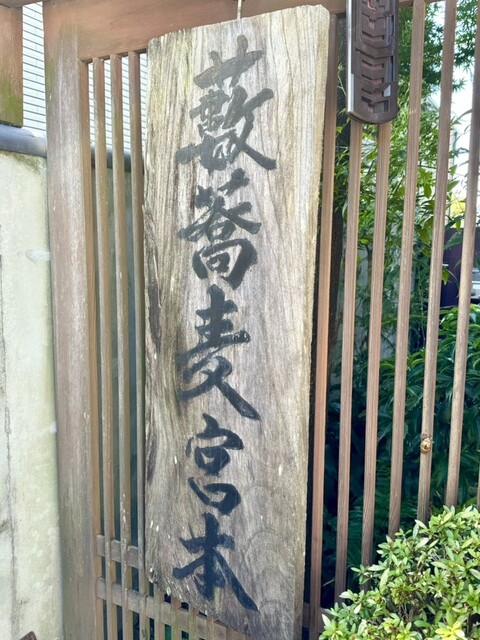 藪蕎麦宮本